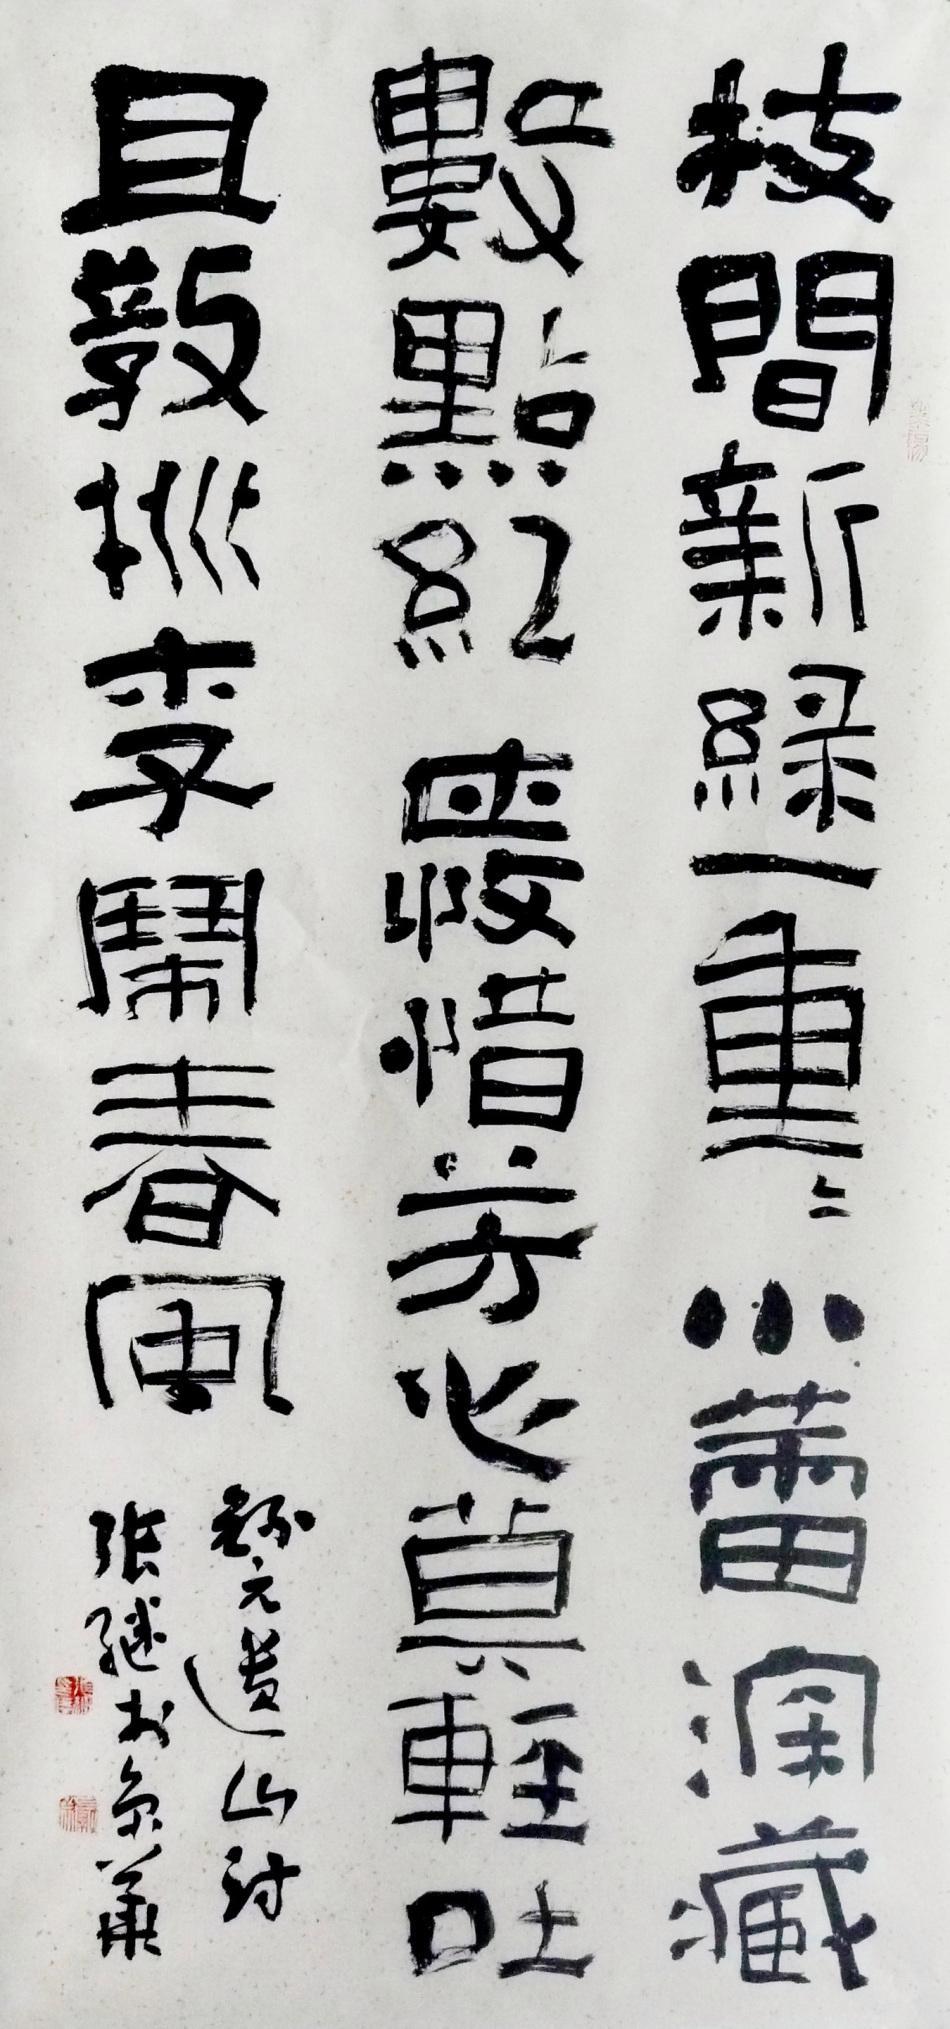 枝間新綠一重〻小蕾深藏
數點紅愛惜芳心莫輕吐
且教桃李鬧春風
錄元遺山詩
張繼於京華